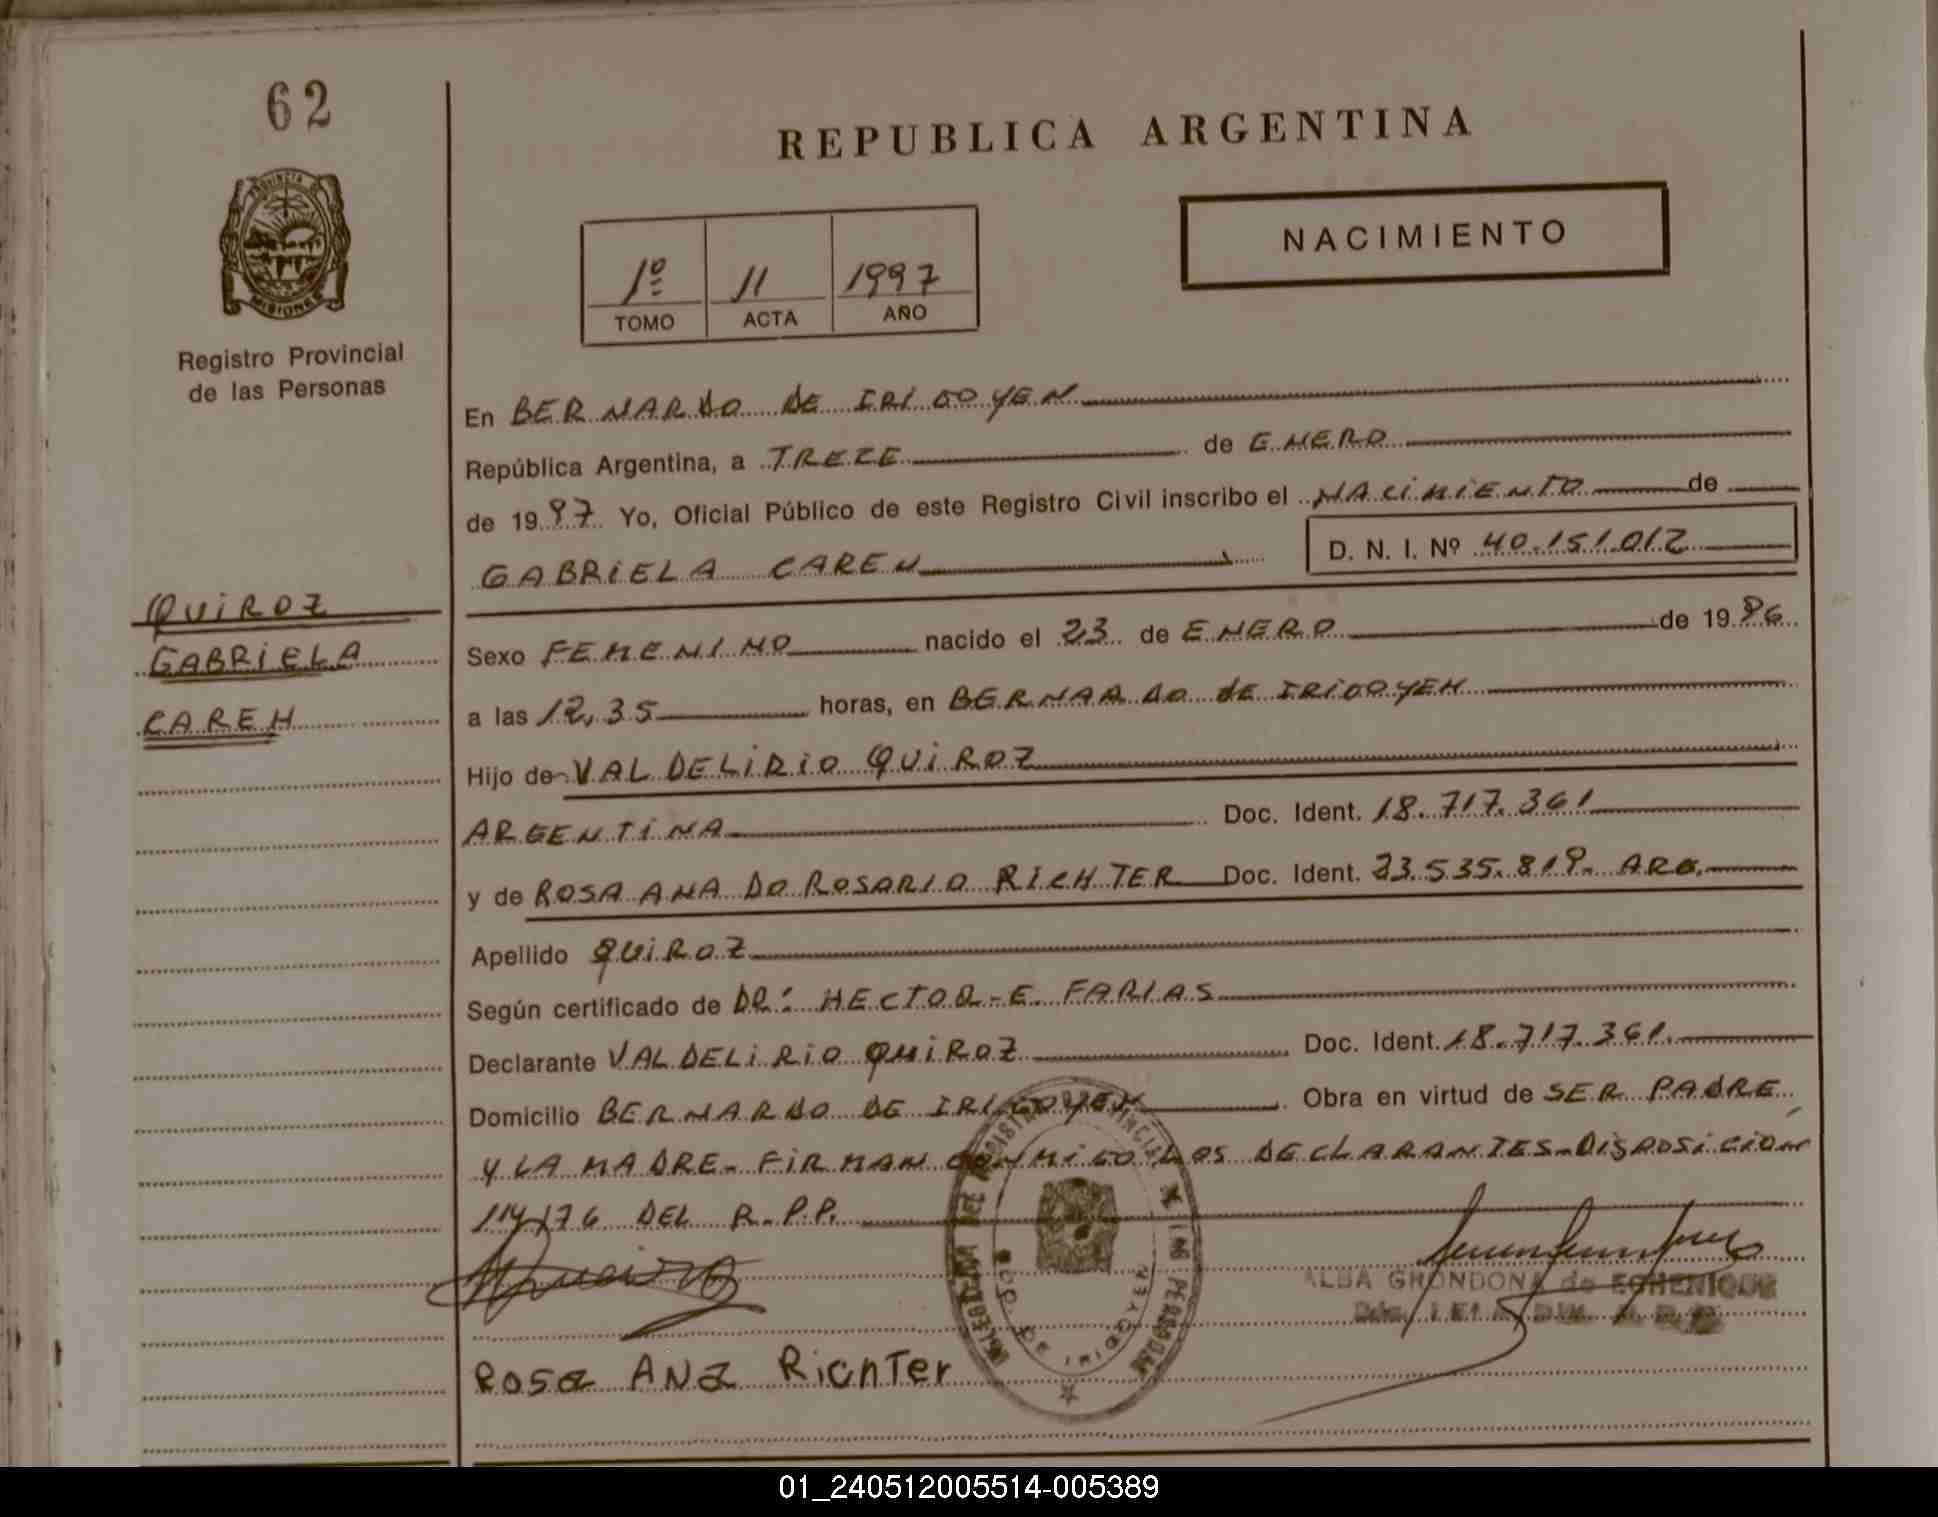 62
REPUBLICA ARGENTINA
PROVINCIA DE
MISIONES
Registro Provincial
de las Personas
1º 11 1997
TOMO ACTA AÑO
NACIMIENTO
En BERNARDO DE IRIGOYEN
República Argentina, a TRECE de ENERO
de 1997 Yo, Oficial Público de este Registro Civil inscribo el NACIMIENTO de
GABRIELA CAREN D. N. I. Nº 40.151.012
QUIROZ
GABRIELA
CAREN
Sexo FEMENINO nacido el 23 de ENERO de 1996
a las 12,35 horas, en BERNARDO DE IRIGOYEN
Hijo de VALDELIRIO QUIROZ
ARGENTINA Doc. Ident. 18.717.361
y de ROSA ANA DO ROSARIO RICHTER Doc. Ident. 23.535.819. ARG.
Apellido QUIROZ
Según certificado de DR: HECTOR-E FARIAS
Declarante VALDELIRIO QUIROZ Doc. Ident. 18.717.361.
Domicilio BERNARDO DE IRIGOYEN Obra en virtud de SER PADRE
Y LA MADRE- FIRMAN CONMIGO LOS DECLARANTES-DISPOSICIÓN
114/76 DEL R.P.P.
ALBA GRONDONA de ECHENIQUE
DELEGACION DEL REGISTRO PROVINCIAL DE LAS PERSONAS
BDO. DE IRIGOYEN
Rosa Ana Richter
01_240512005514-005389